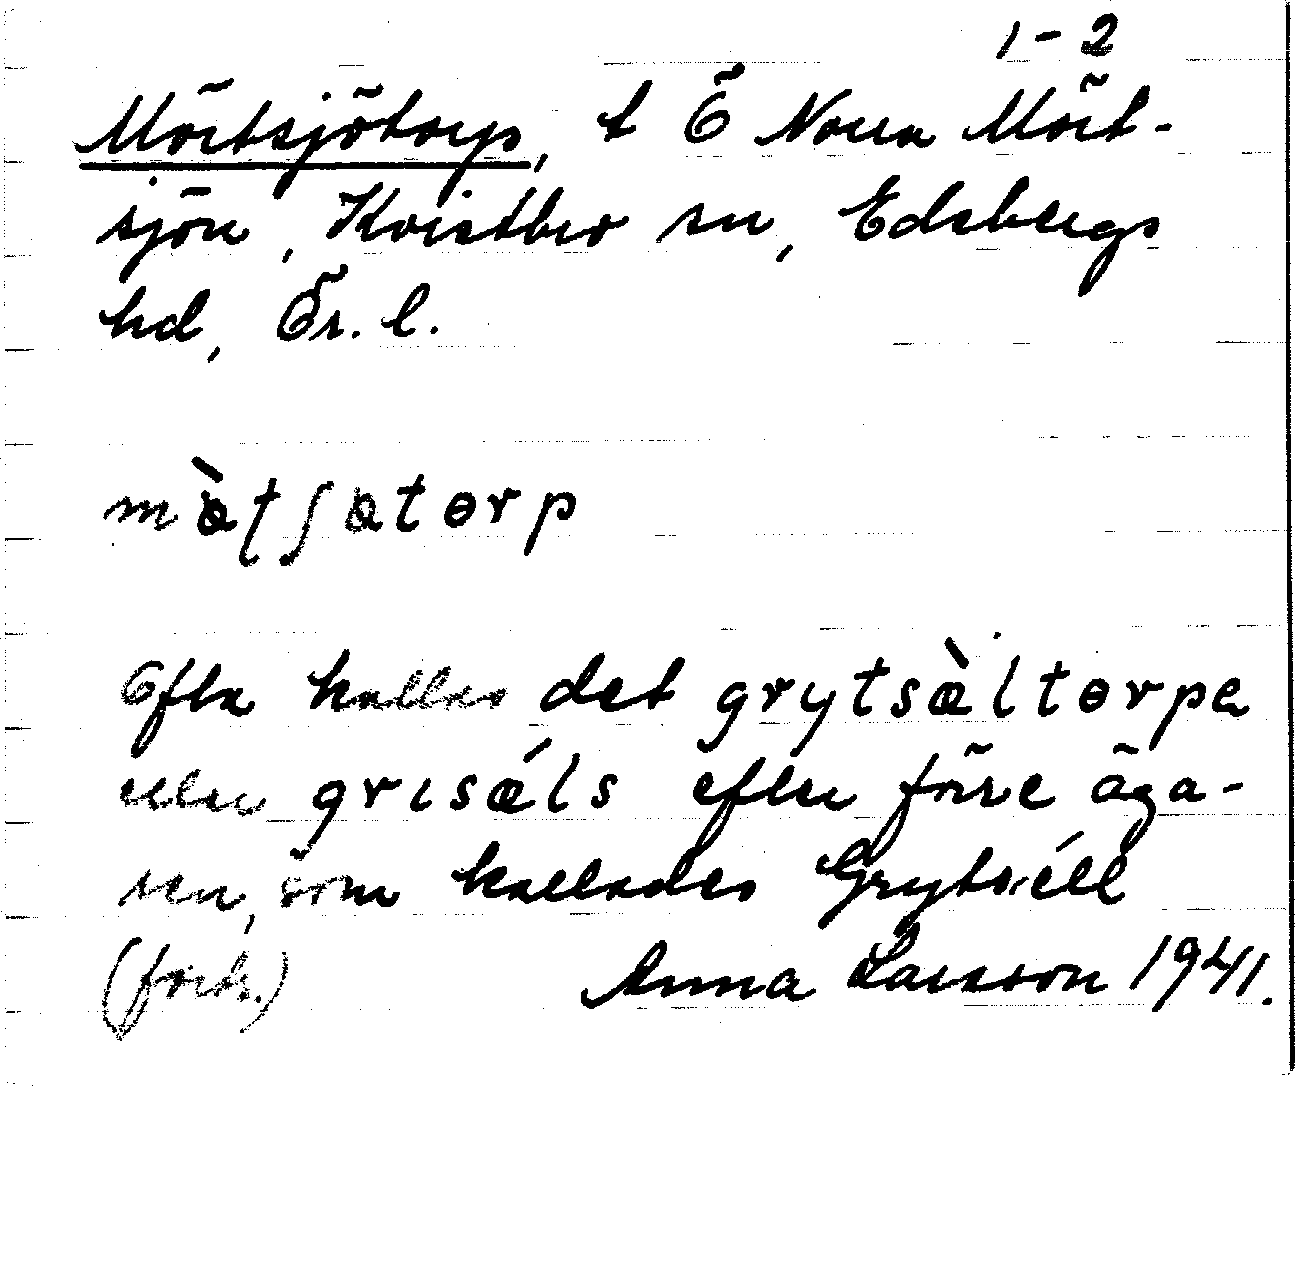 1-2
Mörtsjötorp, t Ö Norra Mört-
sjön, Kvistbro sn, Edsbergs
hd, Ör. l.
Ofta kallas det grytsæ̀ltɵrpa
eller grɩsǽls efter förre äga-
ren, som kallades Grytséll
(forts.) Anna Larsson 1941.